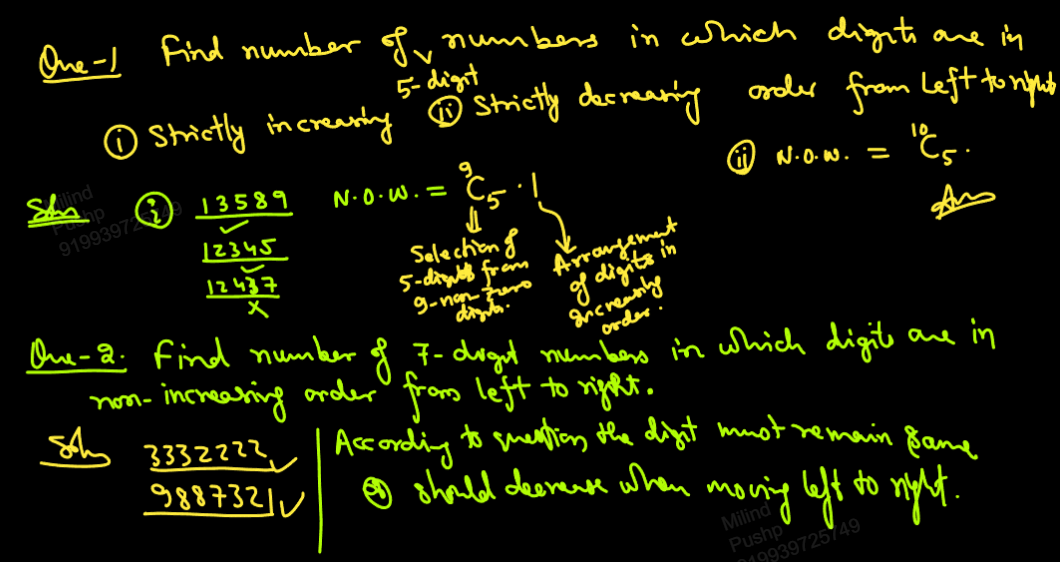 Que-1 Find number of 5-digit numbers in which digits are in
(i) Strictly increasing (ii) Strictly decreasing order from left to right
(ii) N.O.W. = ¹⁰C₅.
Ans
Soln (i) 13589 ✓ N.O.W. = ⁹C₅ · 1
12345 ✓
12437 x
Selection of
5-digits from
9-non-zero
digits.
Arrangement
of digits in
increasing
order.
Que-2. Find number of 7-digit numbers in which digits are in
non-increasing order from left to right.
Soln 3332222 ✓
9887321 ✓
According to question, the digit must remain same
or should decrease when moving left to right.
Milind
Pushp
919939725749
Milind
Pushp
919939725749